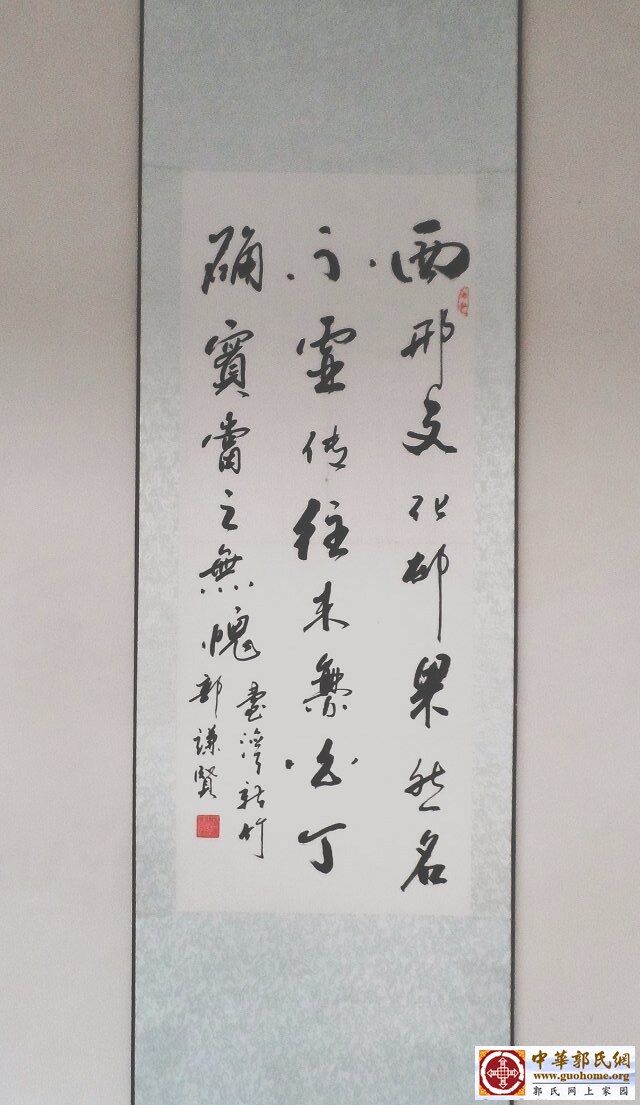 西邢文化邨果然名
不虛传往来無白丁
确實當之無愧
臺灣新竹
郭謙賢
中華郭氏網
www.guohome.org
郭氏网上家园